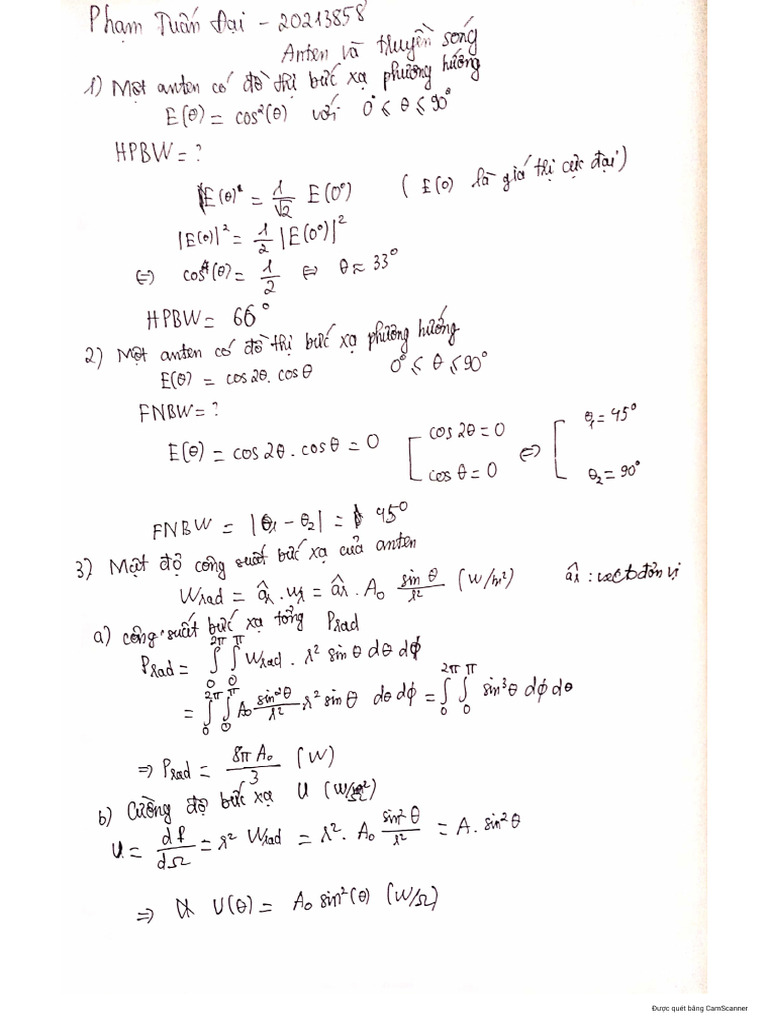 Phạm Tuấn Đại - 20213858
Anten và truyền sóng
1) Một anten có đồ thị bức xạ phương hướng
E(θ) = cos²(θ) với 0° ≤ θ ≤ 90°
HPBW = ?
E(θ) = 1/√2 E(0°) (E(0) là giá thị cực đại)
|E(θ)|² = 1/2 |E(0°)|²
⇔ cos⁴(θ) = 1/2 ⇔ θ ≈ 33°
HPBW = 66°
2) Một anten có đồ thị bức xạ phương hướng
E(θ) = cos2θ.cosθ 0° ≤ θ ≤ 90°
FNBW = ?
E(θ) = cos2θ.cosθ = 0 [ cos2θ = 0 ⇔ [ θ₁ = 45°
cosθ = 0 θ₂ = 90°
FNBW = |θ₁ - θ₂| = 45°
3) Mật độ công suất bức xạ của anten
Wrad = âr.wr = âr.A₀ sinθ/r² (W/m²) âr : vectơ đơn vị
a) công suất bức xạ tổng Prad
Prad = ∫₀^2π ∫₀^π Wrad.r² sinθ dθ dϕ
= ∫₀^2π ∫₀^π A₀ sin²θ/r² r² sinθ dθ dϕ = ∫₀^2π ∫₀^π sin³θ dϕ dθ
⇒ Prad = 8πA₀/3 (W)
b) Cường độ bức xạ U
U = df/dΩ = r² Wrad = r².A₀ sin²θ/r² = A.sin²θ
⇒ U(θ) = A₀ sin²(θ) (W/Ω)
Được quét bằng CamScanner